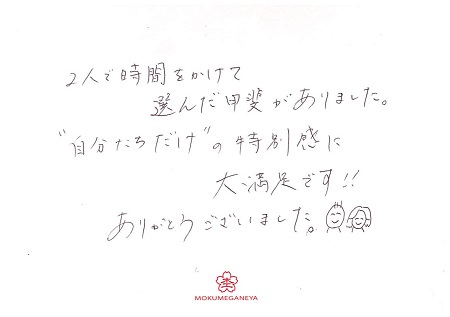 2人で時間をかけて
選んだ甲斐がありました。
"自分たちだけ"の特別感に
大満足です!!
ありがとうございました。
MOKUMEGANEYA